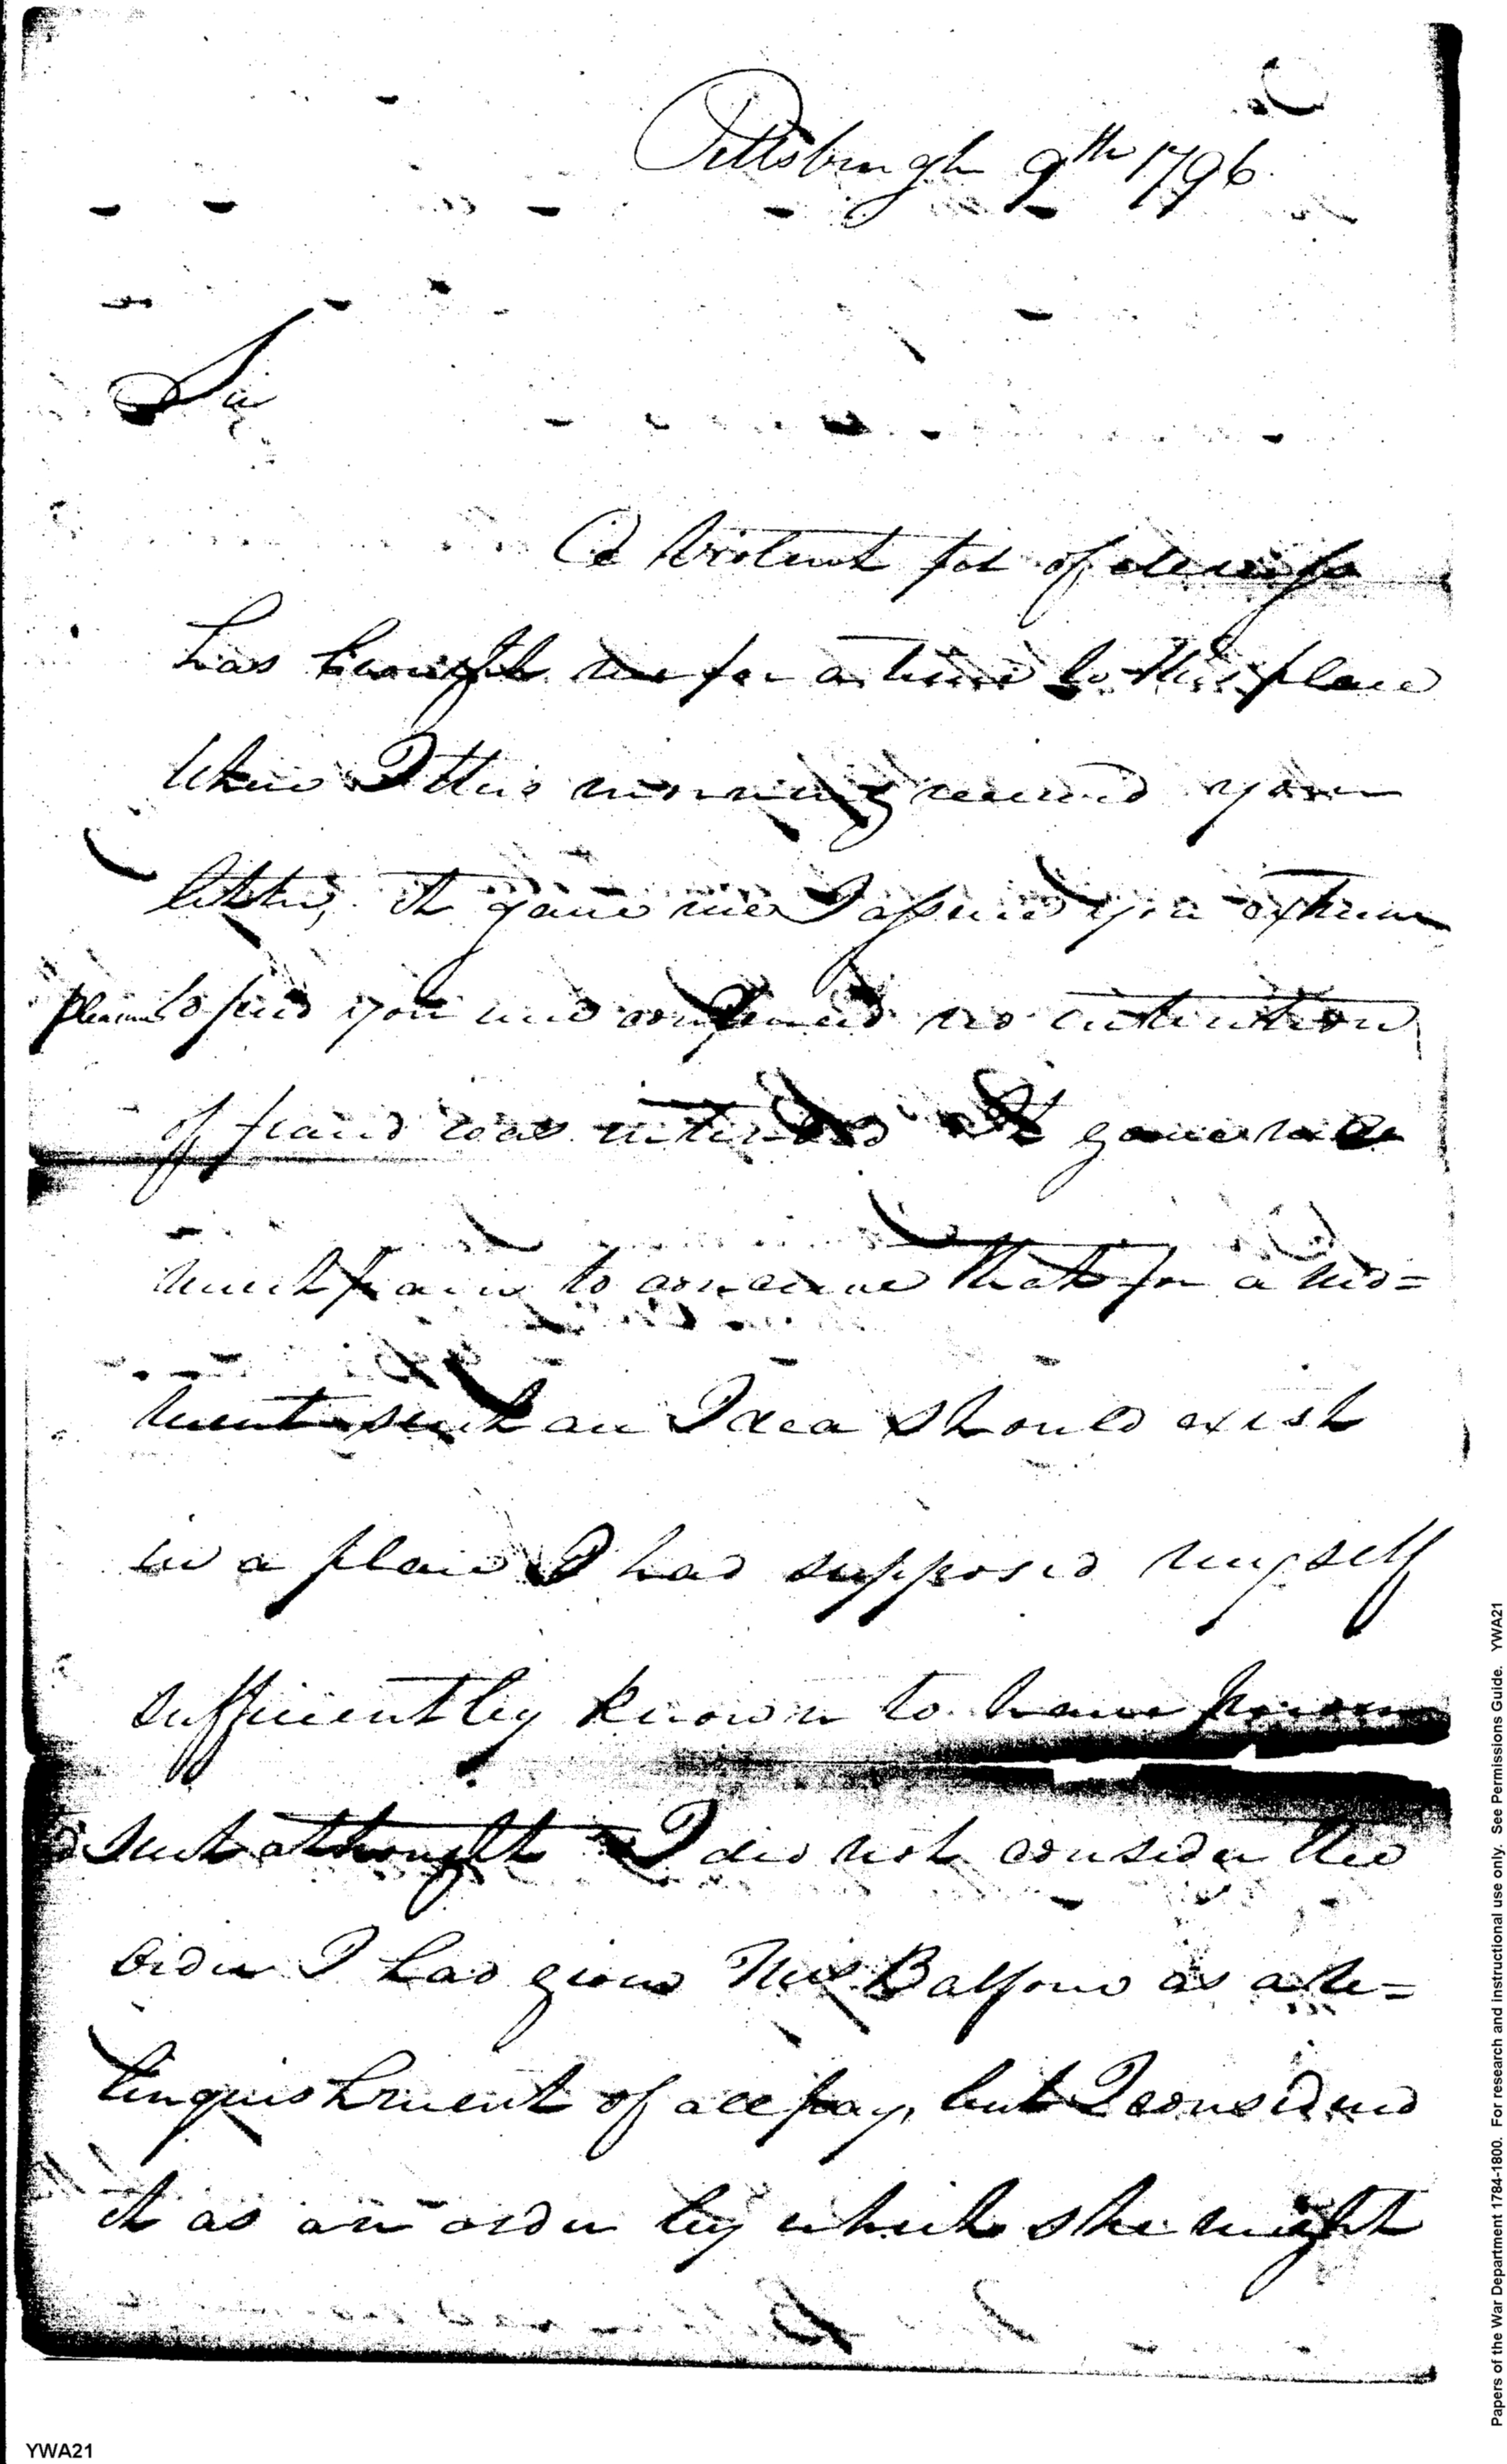 Pittsburgh 9th 1796
Sir
A violent fit of illness
has brought me for a time to this place
when I this morning received your
letter, it gave me I assure you extreme
pleasure to find you and conceived no intention
of fraud was intended it gave me
much pain to conceive that for a mo=
ment such an Idea should exist
in a place I had supposed myself
sufficiently known to have
such a thought I did not consider the
order I had given Mrs Balfour as a re=
linquishment of all pay, but I considered
it as an order by which she might
Papers of the War Department 1784-1800. For research and instructional use only. See Permissions Guide. YWA21
YWA21